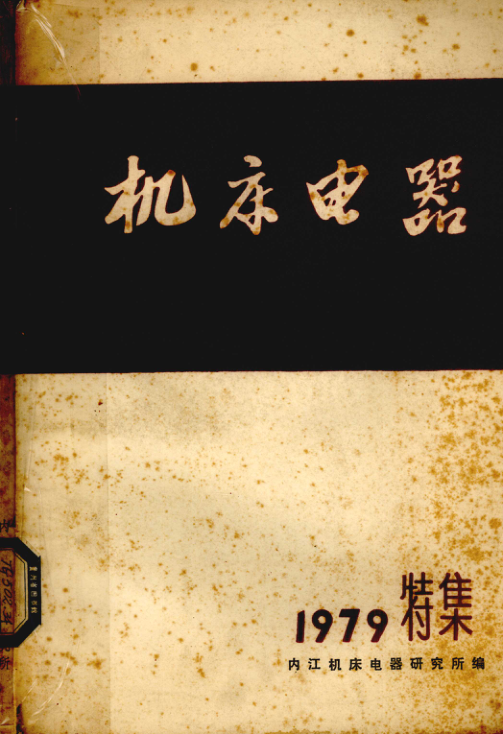 机床电器
1979特集
内江机床电器研究所编